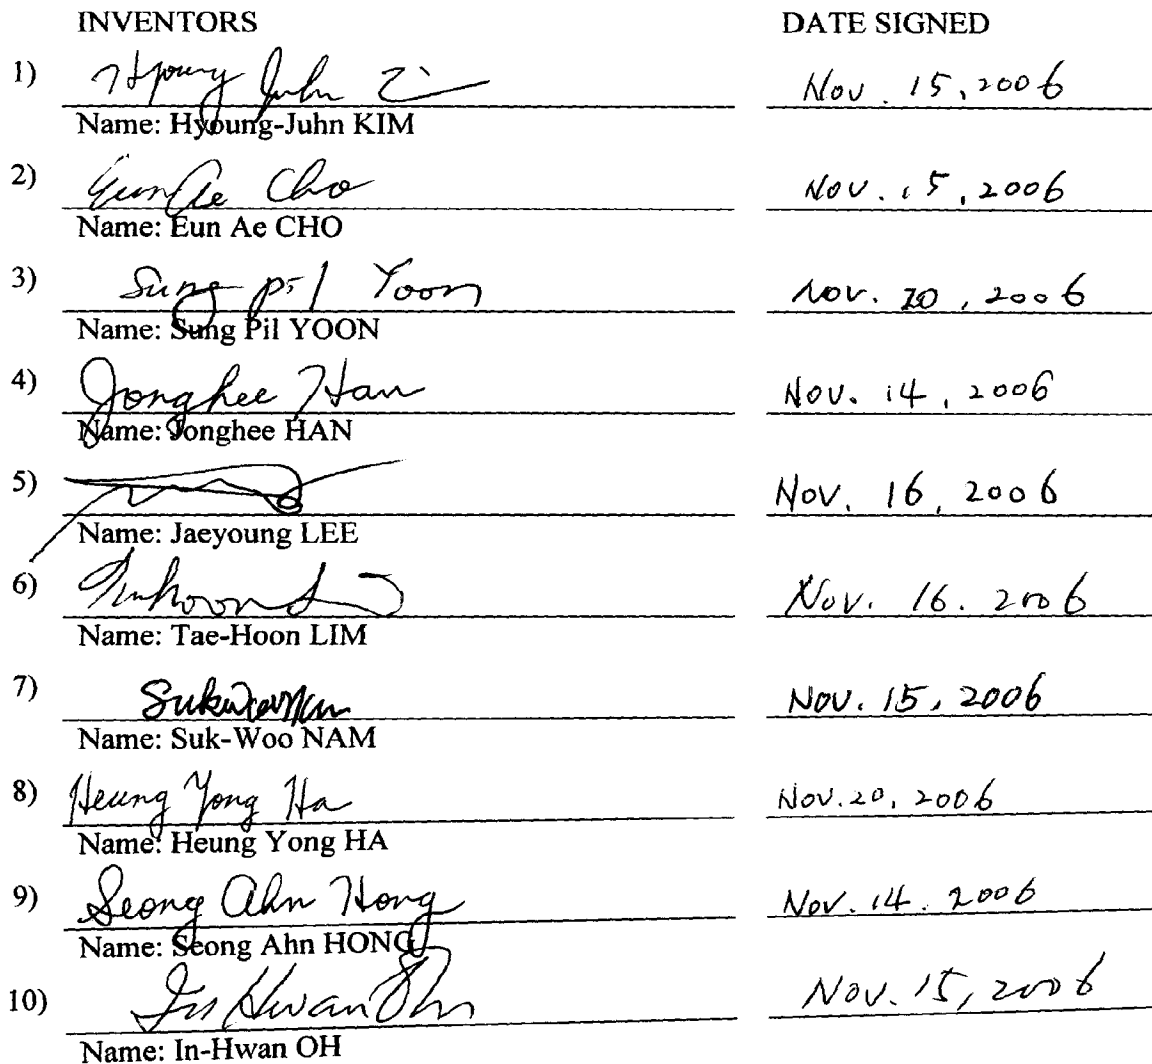 INVENTORS DATE SIGNED
1) Hyoung Juhn Nov. 15, 2006
Name: Hyoung-Juhn KIM
2) Eun Ae Cho Nov. 15, 2006
Name: Eun Ae CHO
3) Sung Pil Yoon Nov. 20, 2006
Name: Sung Pil YOON
4) Jonghee Han Nov. 14, 2006
Name: Jonghee HAN
5) Nov. 16, 2006
Name: Jaeyoung LEE
6) Nov. 16. 2006
Name: Tae-Hoon LIM
7) Nov. 15, 2006
Name: Suk-Woo NAM
8) Heung Yong Ha Nov. 20, 2006
Name: Heung Yong HA
9) Seong Ahn Hong Nov. 14. 2006
Name: Seong Ahn HONG
10) In Hwan Oh Nov. 15, 2006
Name: In-Hwan OH